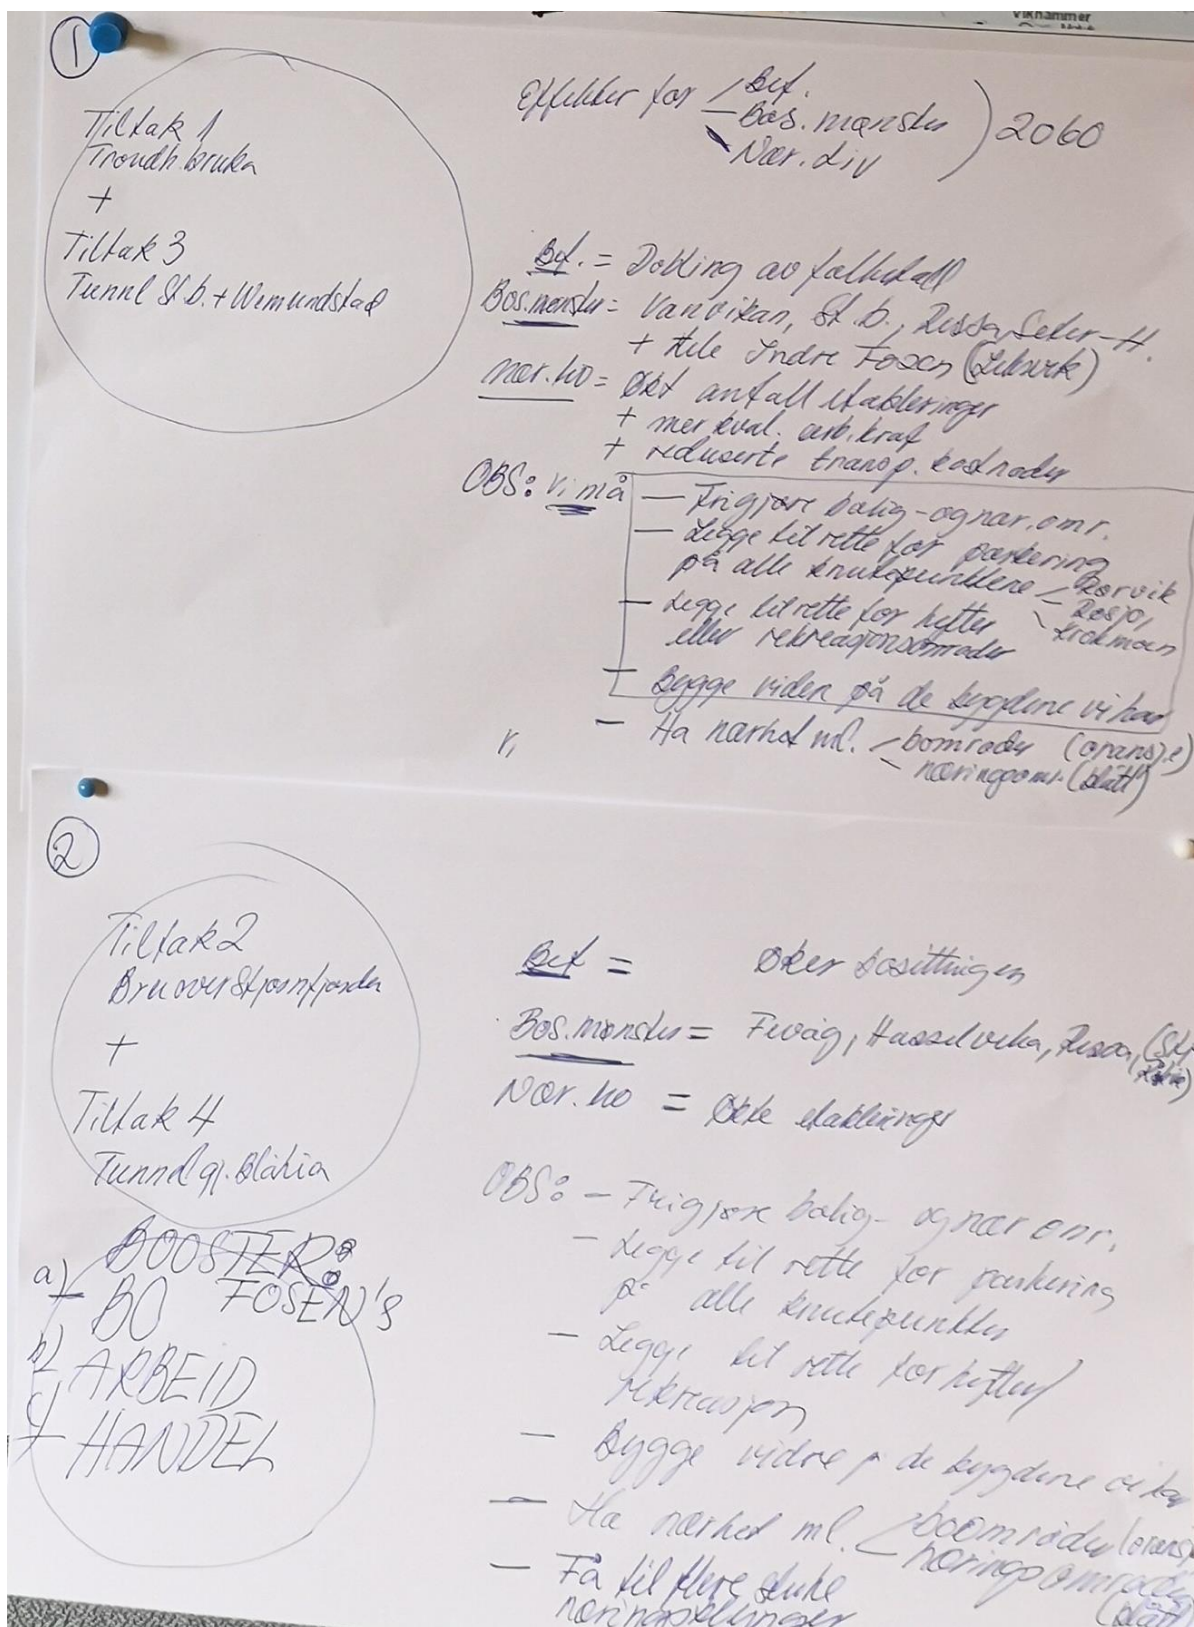 Vikhammer
1
Tiltak 1
Trondh.bruka
+
Tiltak 3
Tunnl St.b. + Wemundstad
Effekter for
Bef.
Bos.mønster
Nær.liv
2060
Bef. = Dobling av folketall
Bos.mønster = Vanvikan, St.b., Rissa, Seter-H.
+ Hele Indre Fosen (Leksvik)
nær.liv = Økt antall etableringer
+ mer kval. arb.kraf
+ reduserte transp. kostnader
OBS: vi må
— Frigjøre bolig- og nær.omr.
— Legge til rette for parkering
på alle knutepunktene
Rørvik
Rosjø,
Krokmoen
— Legge til rette for hytter
eller rekreasjonsområder
— Bygge videre på de bygdene vi har
— Ha nærhet ml.
boområder (oransje)
næringsomr. (blått)
2
Tiltak 2
Bru over Stjørnfjorden
+
Tiltak 4
Tunnel gj. Blåhia
Bef = Øker bosittingen
Bos.mønster = Fevåg, Hasselvika, Rissa,
Nær.liv = Økte etableringer
OBS: — Frigjøre bolig- og nær omr.
— Legge til rette for parkering
på alle knutepunkter
— Legge til rette for hytter/
rekreasjon
— Bygge vidre på de bygdene vi har
— Ha nærhet ml.
boområder (orans
næringsområder
(blått)
— Få til flere slike
næringsetableringer
BOOSTER:
a) — BO FOSEN'S
b) ARBEID
c) — HANDEL